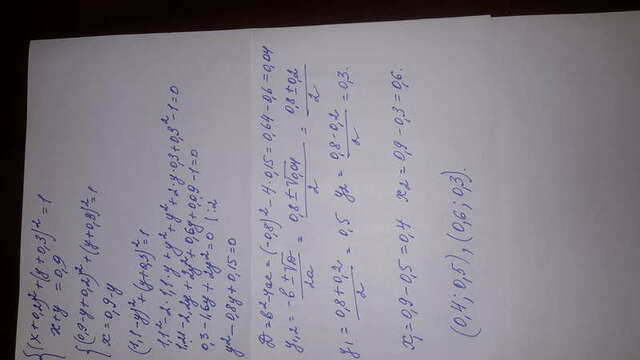 {(x+0,2)²+(y+0,3)²=1
x+y=0,9
{(0,9-y+0,2)²+(y+0,3)²=1
x=0,9-y
(1,1-y)²+(y+0,3)²=1
1,1²-2·1,1·y+y²+y²+2·y·0,3+0,3²-1=0
1,21-2,2y+2y²+0,6y+0,09-1=0
0,3-1,6y+2y²=0 |:2
y²-0,8y+0,15=0
D=b²-4ac=(-0,8)²-4·0,15=0,64-0,6=0,04
y₁,₂=(-b±√D)/2a=(0,8±√0,04)/2=(0,8±0,2)/2
y₁=(0,8+0,2)/2=0,5 y₂=(0,8-0,2)/2=0,3.
x₁=0,9-0,5=0,4 x₂=0,9-0,3=0,6.
(0,4;0,5),(0,6;0,3).